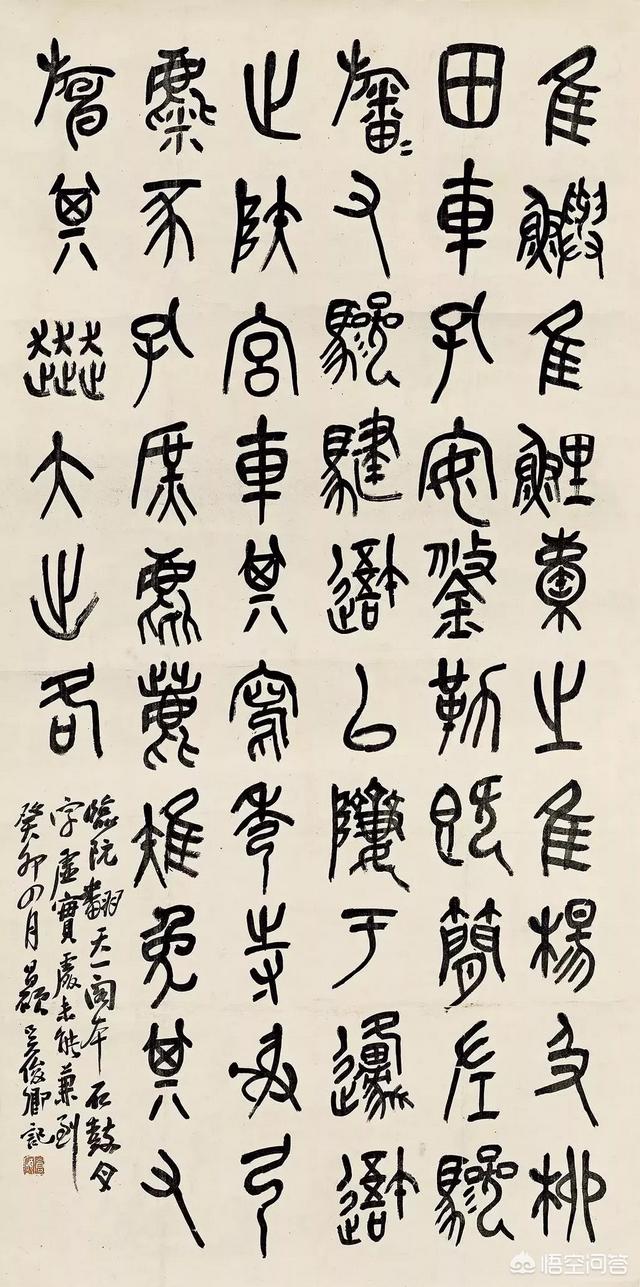 隹鱮隹鯉橐之隹楊及柳
田車孔安鋚勒既簡左驂
旛〻又驂騝䢩以隮于邍䢩
止陜宮車其寫秀寺射弓
麋豕孔庶麀鹿雉兔其又
其大出各
臨阮翻天一閣本石鼓文
字虛實處未能兼到
癸卯四月昌碩吳俊卿記
悟空问答